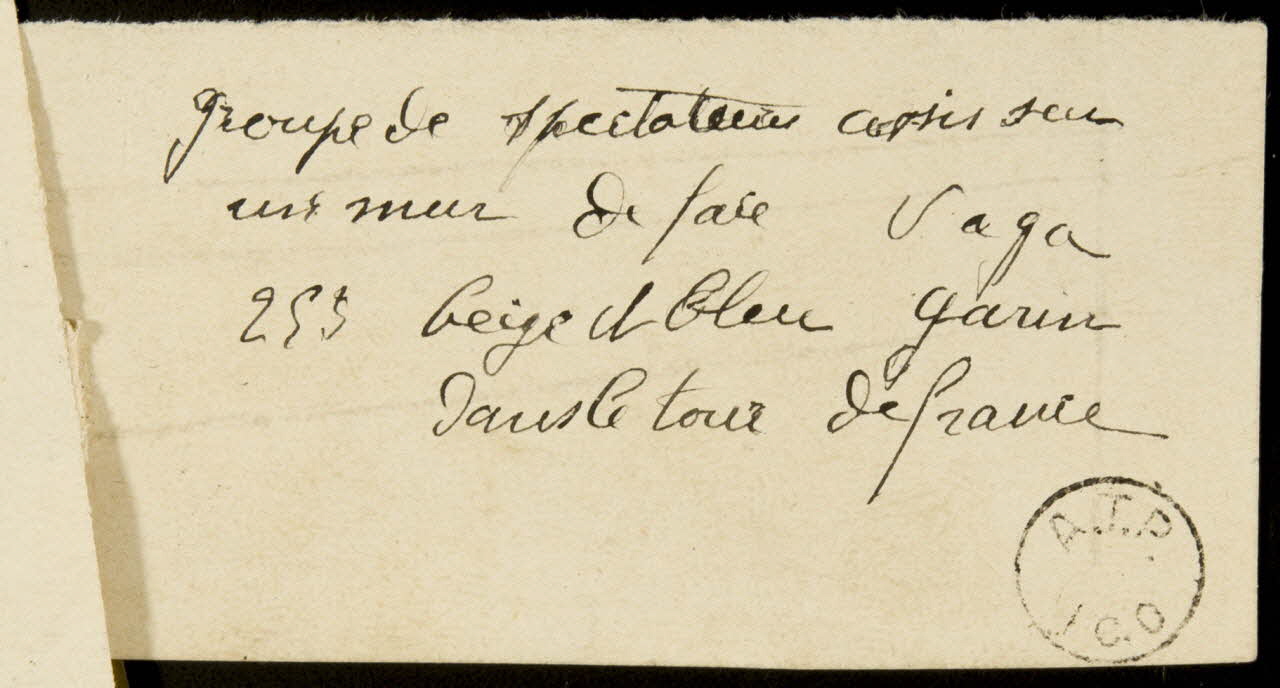 groupe de spectateurs assis sur
un mur de face Vaga
253 beige et bleu garin
dans le tour de france
A.T.P.
ICO